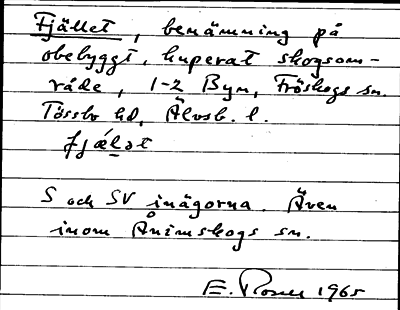 Fjället, benämning på
obebyggt, kuperat skogsom-
råde, 1-2 Byn, Fröskogs sn.
Tössbo hd, Älvsb. l.
fjälət
S och SV inägorna. Även
inom Ånimskogs sn.
E. Rosell 1965